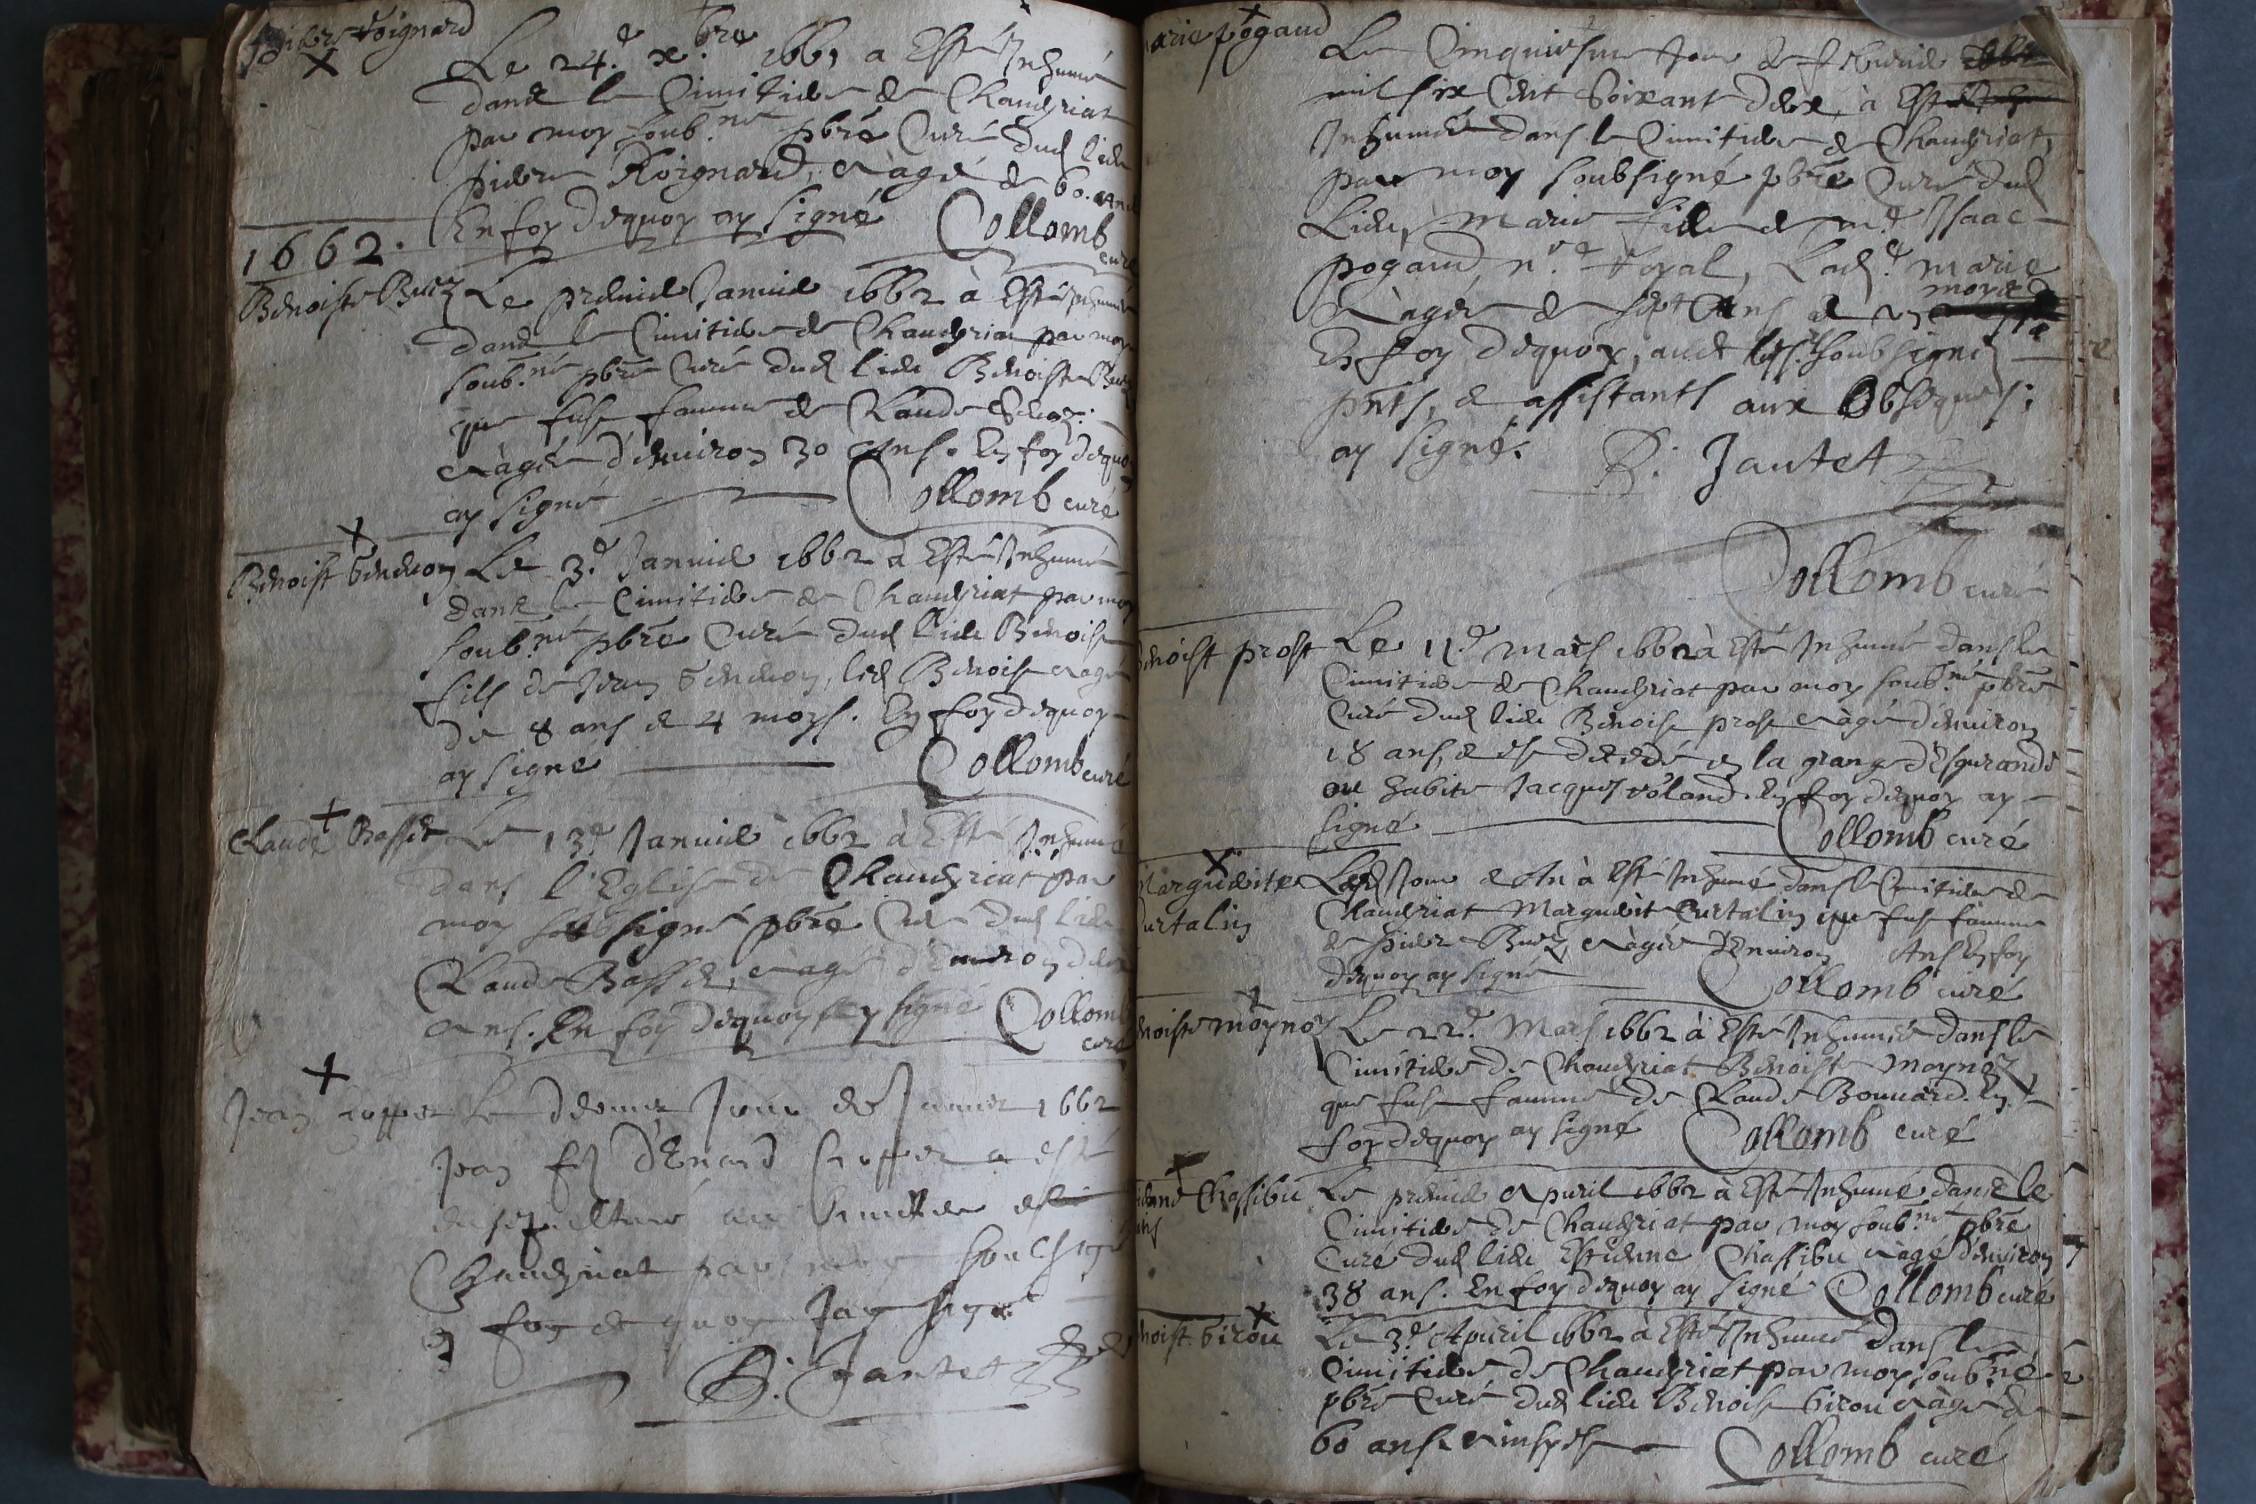 Le 24.e x.bre 1661 a Esté Inhumé
dans le Cimitiere de Chaudyriat
par moy soub.né pbre Curé dud lieu
pierre Roignard, eagé de 60. ans
En foy dequoy ay signé Collomb
curé
1662.
Benoiste Buez Le premier Januier 1662 à Esté Inhumée
dans le Cimitiere de Chaudyriat par moy
soub.né pbre Curé dud lieu Benoiste Buez
que fust famme de Claude
eàgée d'enuiron 30 Ans. En foy dequoy
ay signé Collomb curé
Benoist Le 3.e Januier 1662 à Esté Inhumé
dans le Cimitiere de Chaudyriat par moy
soub.né pbre Curé dud lieu Benoist
fils de Jean led Benoist eagé
de 8 ans et 4 moys. En foy dequoy
ay signé Collomb curé
Claude Basset Le 13.e Januier 1662 à Esté Inhumé
dans l'Eglise de Chaudyriat par
moy soubsigné pbre Curé dud lieu
Claude Basset, eagé d'Enuiron deux
Ans. En foy dequoy ay signé Collomb
curé
Jean Le dernier Jour de Januier 1662
Jean fils a esté
Chaudyriat par moy soubsigné
en foy de quoy Jay signé
B. Jantet
Marie pogaud Le Cinquiesme Jour de feburier
mil six Cent Soixante deux, à Esté
Inhumée dans le Cimitiere de Chaudyriat,
par moy soubsigné pbre Curé dud
Lieu, Marie fille de m.e Isaac
pogaud, n.re Royal, Lad.e marie
eàgée de sept Ans et un moys
En foy dequoy, auec les soubsignez
pnts, et assistants aux Obseques;
ay signé. B. Jantet
Collomb curé
Benoist prost Le 11.e Mars 1662 à Esté Inhumé dans le
Cimitiere de Chaudyriat par moy soub.né pbre
Curé dud lieu Benoist prost eàgé d'enuiron
18 ans, et est decedé en la grange d'Esgurande
ou habite Jacques Voland. En foy dequoy ay
signé Collomb curé
Marguerite Led Jour et An à Esté Inhumé dans le Cimitiere de
Curtalin Chaudyriat Marguerite Curtalin que fust famme
de pierre Buez, eàgée d'Enuiron Ans En foy
dequoy ay signé Collomb curé
Benoiste moynoz Le 22.e Mars 1662 à Esté Inhumée dans le
Cimitiere de Chaudyriat Benoiste moynoz,
que fust famme de Claude Bouuard. En
foy dequoy ay signé Collomb curé
Chassibu Le premier Apuril 1662 à Esté Inhumé dans le
Cimitiere de Chaudyriat par moy soub.né pbre
Curé dud lieu Estienne Chassibu eàgé d'enuiron
38 ans. En foy dequoy ay signé Collomb curé
Benoist birou Le 3.e Apuril 1662 à Esté Inhumé dans le
Cimitiere de Chaudyriat par moy soub.né
pbre Curé dud lieu Benoist birou eàgé de
60 ans. Collomb curé